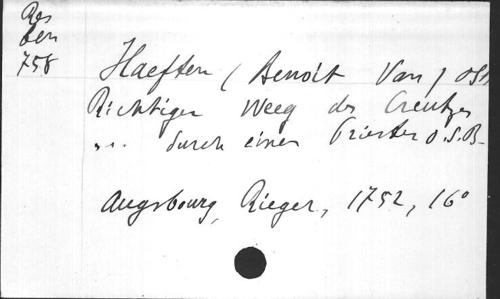 Res
ben
758
Haeften (Benoit Van) OSB
Richtiger Weeg des Creutzes
... durch einen Priester O.S.B.
Augsbourg, Rieger, 1752, 16°